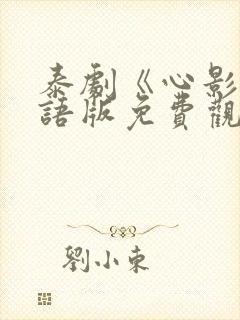 泰劇《心影
語版免費觀
劉小東